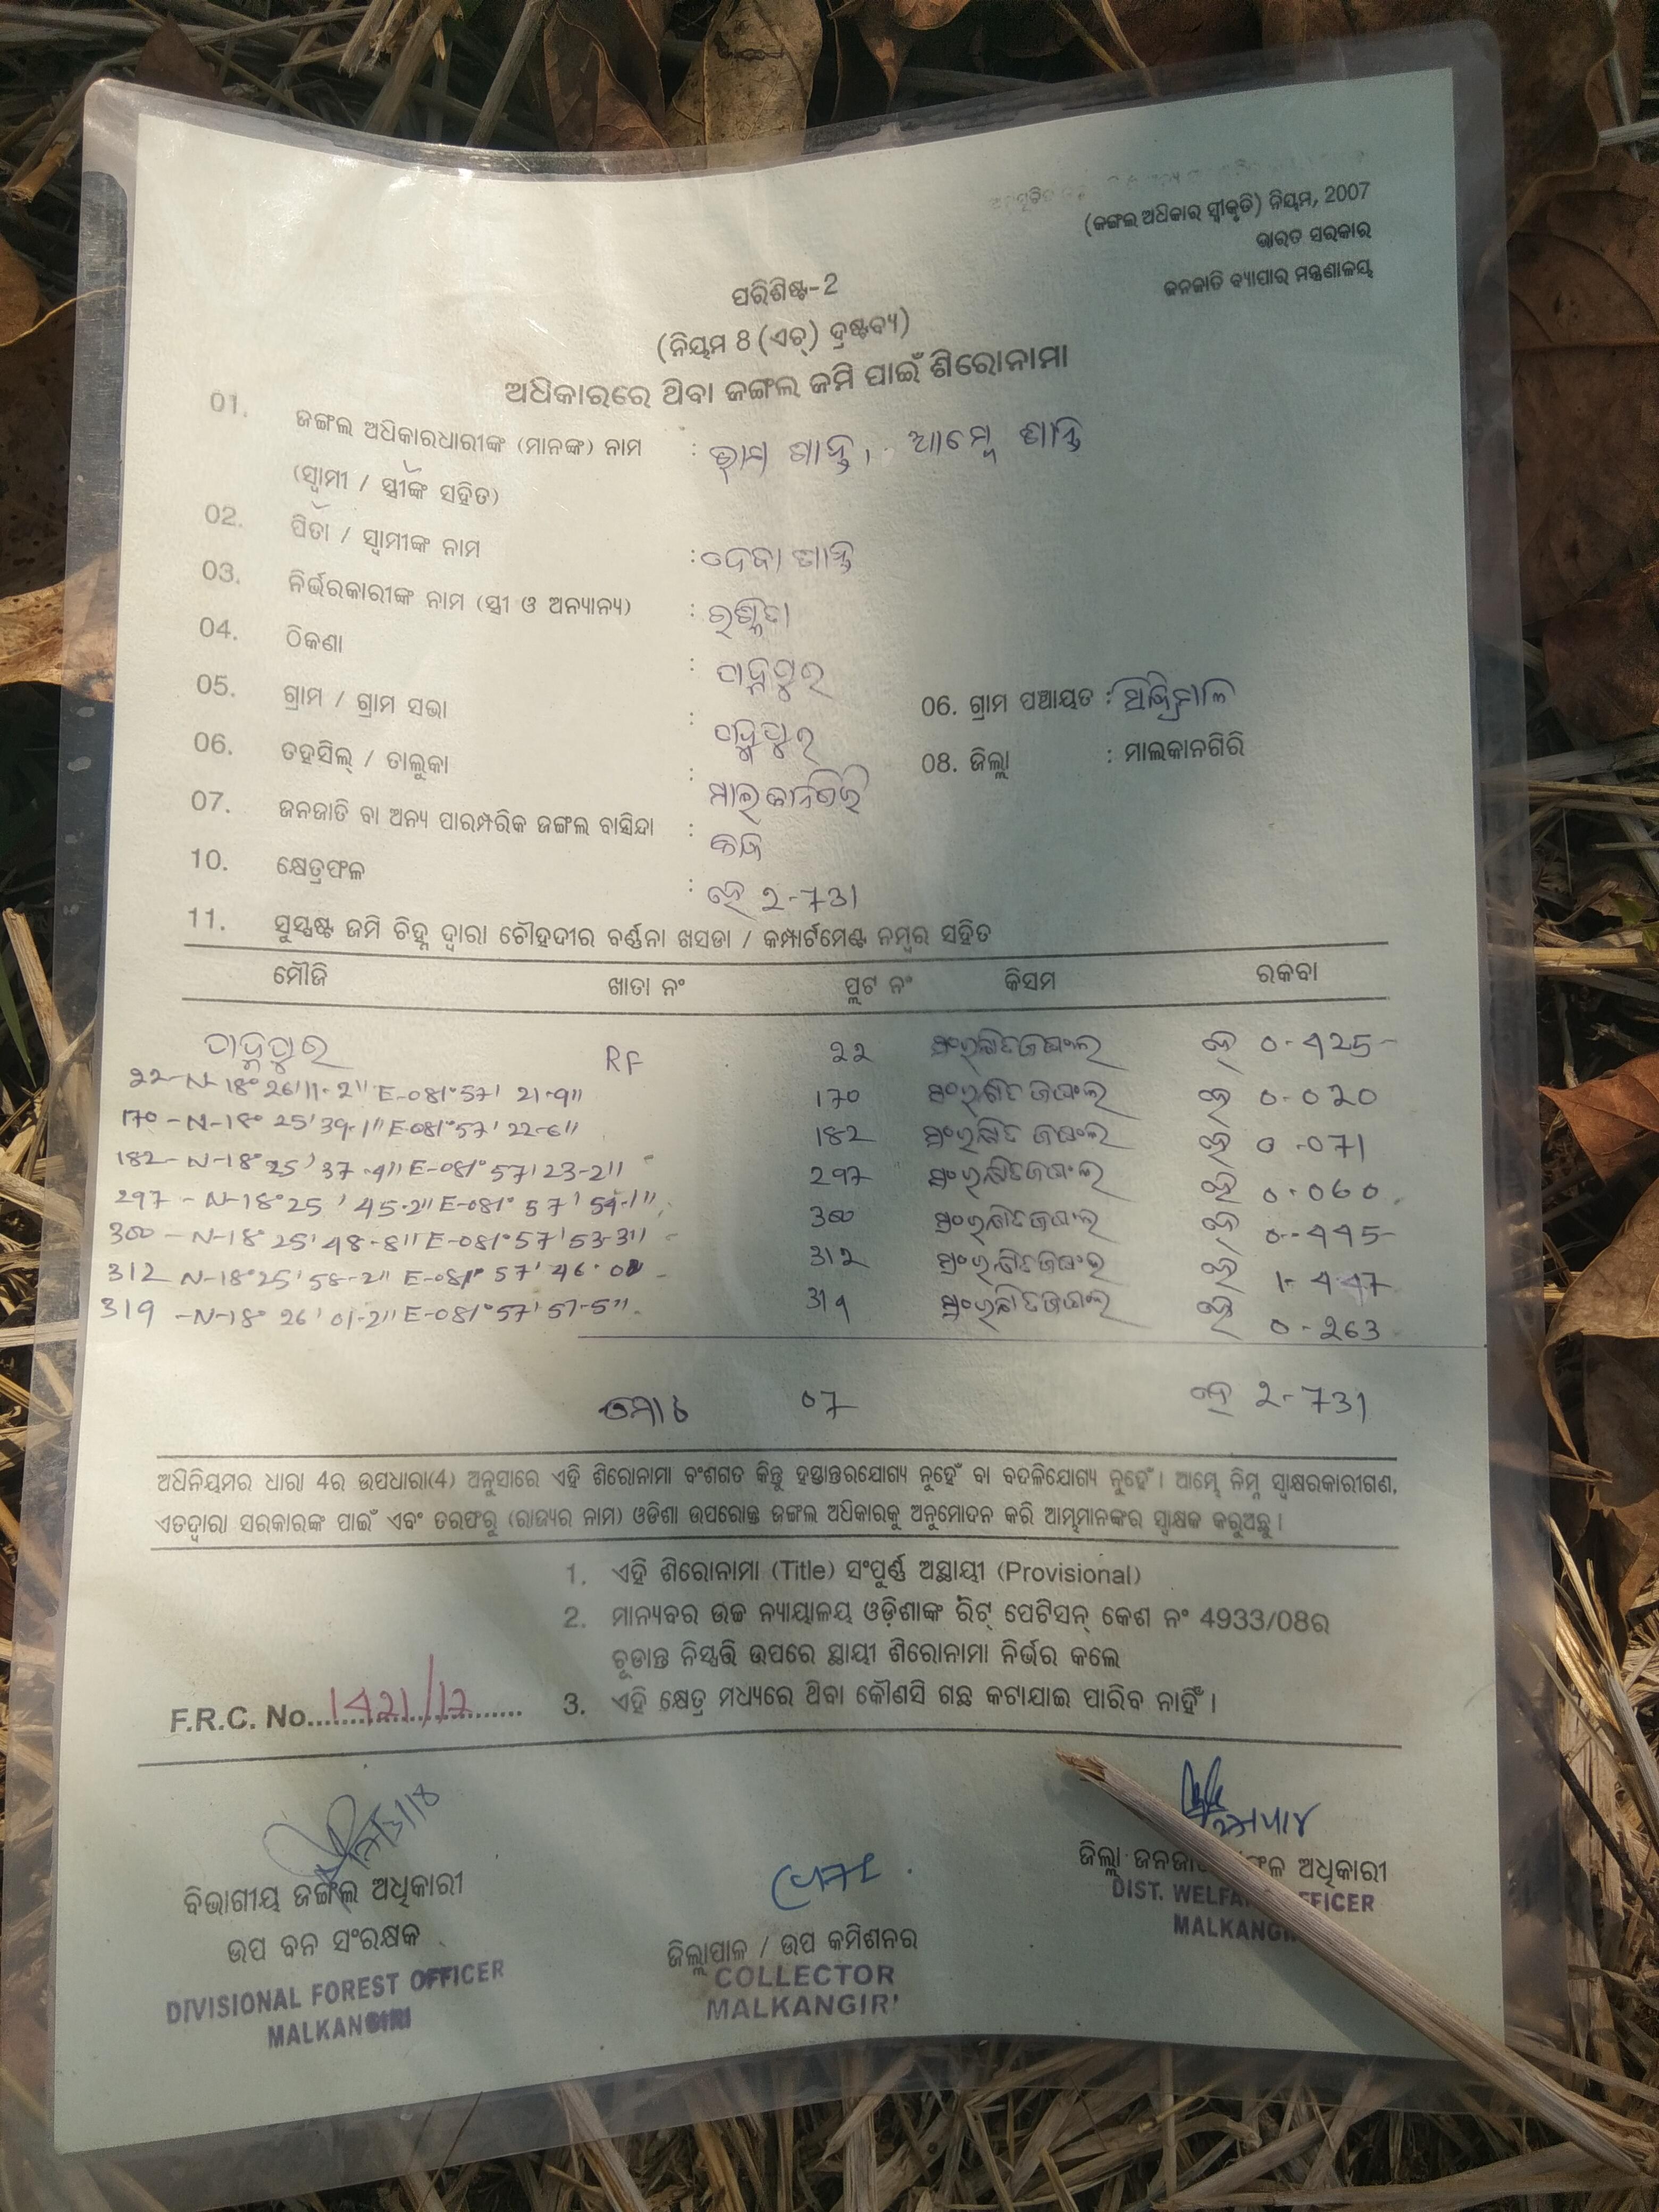 (ଜଙ୍ଗଲ ଅଧିକାର ସ୍ୱୀକୃତି) ନିୟମ, 2007
ଭାରତ ସରକାର
ଜନଜାତି ବ୍ୟାପାର ମନ୍ତ୍ରଣାଳୟ
ପରିଶିଷ୍ଟ-2
(ନିୟମ 8 (ଏଚ୍) ଦ୍ରଷ୍ଟବ୍ୟ)
ଅଧିକାରରେ ଥିବା ଜଙ୍ଗଲ ଜମି ପାଇଁ ଶିରୋନାମା
01. ଜଙ୍ଗଲ ଅଧିକାରଧାରୀଙ୍କ (ମାନଙ୍କ) ନାମ :
(ସ୍ୱାମୀ / ସ୍ତ୍ରୀଙ୍କ ସହିତ)
02. ପିତା / ସ୍ୱାମୀଙ୍କ ନାମ :
03. ନିର୍ଭରକାରୀଙ୍କ ନାମ (ସ୍ତ୍ରୀ ଓ ଅନ୍ୟାନ୍ୟ) :
04. ଠିକଣା :
05. ଗ୍ରାମ / ଗ୍ରାମ ସଭା : 06. ଗ୍ରାମ ପଞ୍ଚାୟତ :
06. ତହସିଲ୍ / ତାଲୁକା : ମାଲକାନଗିରି 08. ଜିଲ୍ଲା : ମାଲକାନଗିରି
07. ଜନଜାତି ବା ଅନ୍ୟ ପାରମ୍ପରିକ ଜଙ୍ଗଲ ବାସିନ୍ଦା :
10. କ୍ଷେତ୍ରଫଳ : ହେ 2-731
11. ସୁସ୍ପଷ୍ଟ ଜମି ଚିହ୍ନ ଦ୍ୱାରା ଚୌହଦୀର ବର୍ଣ୍ଣନା ଖସଡା / କମ୍ପାର୍ଟମେଣ୍ଟ ନମ୍ବର ସହିତ
ମୌଜି ଖାତା ନଂ ପ୍ଲଟ ନଂ କିସମ ରକବା
RF 22 ସଂରକ୍ଷିତ ଜଙ୍ଗଲ ହେ 0-425
22-N-18° 26'11-2" E-081°57' 21-9" 170 ସଂରକ୍ଷିତ ଜଙ୍ଗଲ ହେ 0-020
170-N-18° 25'39-1" E-081°57' 22-6" 182 ସଂରକ୍ଷିତ ଜଙ୍ଗଲ ହେ 0-071
182-N-18°25'37-4" E-081°57'23-2" 297 ସଂରକ୍ଷିତ ଜଙ୍ଗଲ ହେ 0-060
297-N-18°25'45-2" E-081°57'54-1" 300 ସଂରକ୍ଷିତ ଜଙ୍ଗଲ ହେ 0-445
300-N-18°25'48-8" E-081°57'53-3" 312 ସଂରକ୍ଷିତ ଜଙ୍ଗଲ ହେ 1-447
312 N-18°25'58-2" E-081°57'46-0" 319 ସଂରକ୍ଷିତ ଜଙ୍ଗଲ ହେ 0-263
319-N-18°26'01-2" E-081°57'57-5"
ମୋଟ 07 ହେ 2-731
ଅଧିନିୟମର ଧାରା 4ର ଉପଧାରା(4) ଅନୁସାରେ ଏହି ଶିରୋନାମା ବଂଶଗତ କିନ୍ତୁ ହସ୍ତାନ୍ତରଯୋଗ୍ୟ ନୁହେଁ ବା ବଦଳିଯୋଗ୍ୟ ନୁହେଁ । ଆମ୍ଭେ ନିମ୍ନ ସ୍ୱାକ୍ଷରକାରୀଗଣ,
ଏତଦ୍ୱାରା ସରକାରଙ୍କ ପାଇଁ ଏବଂ ତରଫରୁ (ରାଜ୍ୟର ନାମ) ଓଡିଶା ଉପରୋକ୍ତ ଜଙ୍ଗଲ ଅଧିକାରକୁ ଅନୁମୋଦନ କରି ଆମ୍ଭମାନଙ୍କର ସ୍ୱାକ୍ଷକ କରୁଅଛୁ ।
1. ଏହି ଶିରୋନାମା (Title) ସଂପୂର୍ଣ୍ଣ ଅସ୍ଥାୟୀ (Provisional)
2. ମାନ୍ୟବର ଉଚ୍ଚ ନ୍ୟାୟାଳୟ ଓଡ଼ିଶାଙ୍କ ରିଟ୍ ପେଟିସନ୍ କେଶ ନଂ 4933/08ର
ଚୂଡାନ୍ତ ନିସ୍ପତ୍ତି ଉପରେ ସ୍ଥାୟୀ ଶିରୋନାମା ନିର୍ଭର କଲେ
3. ଏହି କ୍ଷେତ୍ର ମଧ୍ୟରେ ଥିବା କୌଣସି ଗଛ କଟାଯାଇ ପାରିବ ନାହିଁ ।
F.R.C. No. 1421/12
ବିଭାଗୀୟ ଜଙ୍ଗଲ ଅଧିକାରୀ
ଉପ ବନ ସଂରକ୍ଷକ
DIVISIONAL FOREST OFFICER
MALKANGIRI
ଜିଲ୍ଲାପାଳ / ଉପ କମିଶନର
COLLECTOR
MALKANGIRI
ଜିଲ୍ଲା ଅଧିକାରୀ
DIST. WELFARE OFFICER
MALKANGIRI